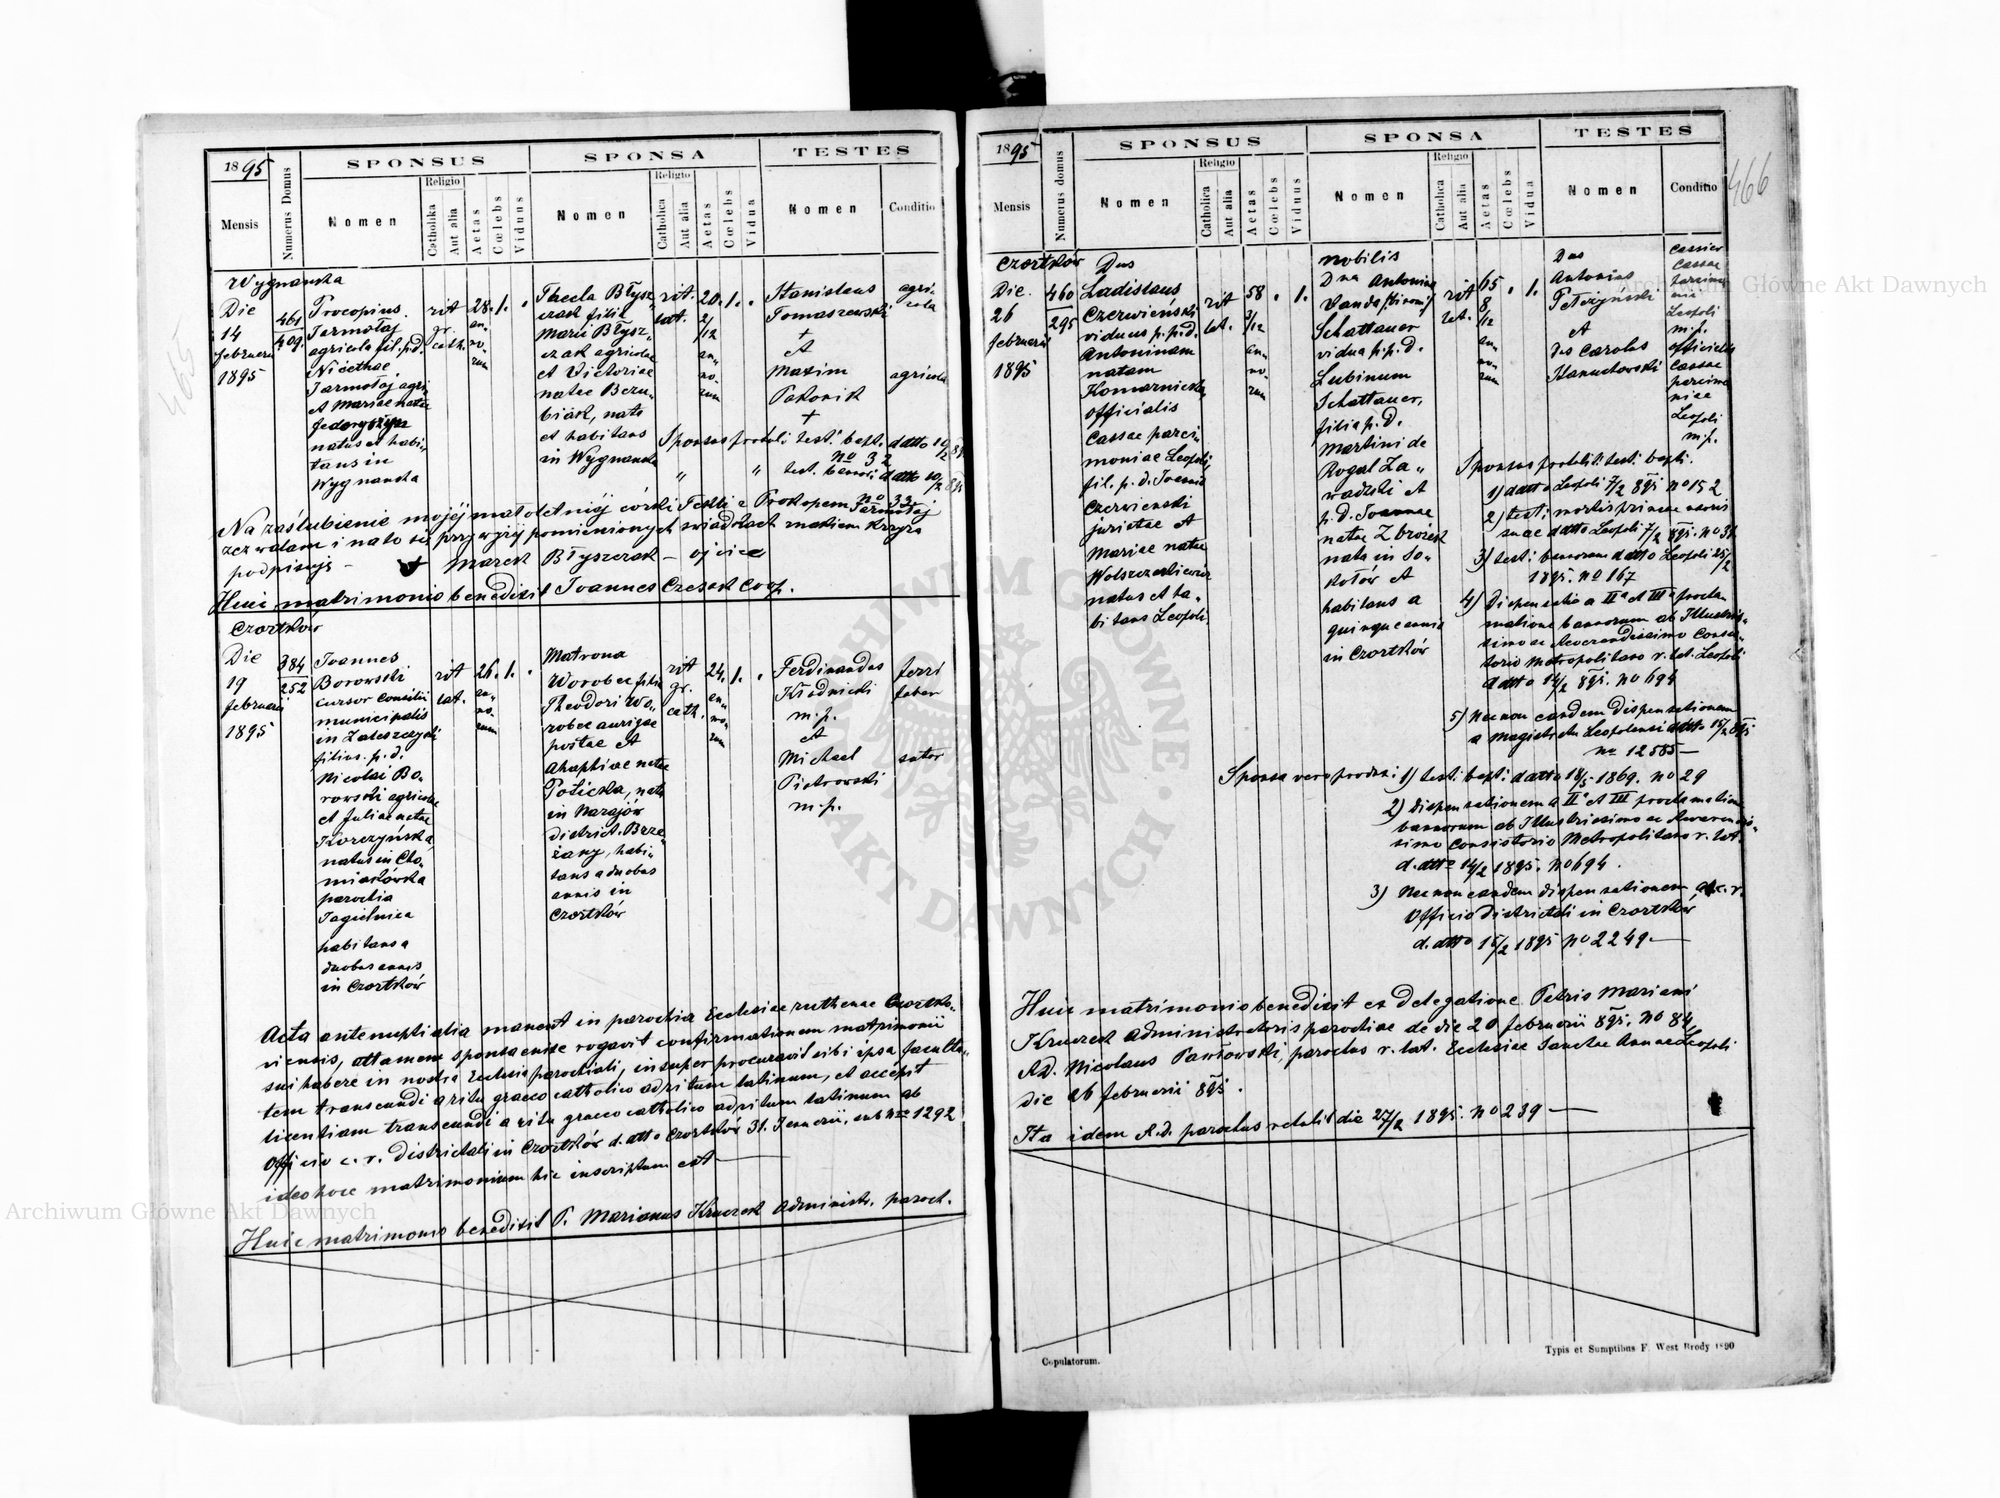 1895
Mensis
Numerus Domus
SPONSUS
Nomen
Religio
Catholika
Aut alia
Aetas
Cœlebs
Viduus
SPONSA
Nomen
Religio
Catholica
Aut alia
Aetas
Cœlebs
Vidua
TESTES
Nomen
Conditio
Wygnanka
Die
14
februarii
1895
461
409.
Procopius
Jarmołaj
agricola fil. p. d.
Nicethae
Jarmołaj agri.
et Mariae natae
natus et habi-
tans in
Wygnanka
rit
gr.
cath.
28.
an-
no-
rum
1.
Thecla Błysz-
czak filia
Marii Błysz-
czak agricolae
et Victoriae
natae Bezu-
biak, nata
et habitans
in Wygnanka
rit.
lat.
20.
2/12
an-
no-
rum
1.
Stanislaus
Tomaszewski
+
et
Maxim
+
agri-
cola
agricola
Sponsus protuli: testi: bapt. datto 10/2 895
No 32
" " test. banni datto 10/2 895
No 33
Na zaślubienie mojéj małoletniéj córki Tekli z Prokopem Jarmołaj
zezwalam i na to się przy wyżéj pomienionych świadkach znakiem krzyża
podpisuję –
+ Marek Błyszczak – ojciec
Huic matrimonio benedixit Joannes Czesak coop.
Czortków
Die
19
februarii
1895
384
252
Joannes
Borowski
cursor Consilii
municipalis
in Zaleszczyki
filius. p. d.
Nicolai Bo-
rowski agricolae
et Juliae natae
Korczyńska
natus in Cho-
miakówka
parochia
Jagielnica
habitans a
duobus annis
in Czortków
rit
lat.
26.
an-
no-
rum
1.
Matrona
Worobec filia
Theodori Wo-
robec aurigae
postae et
Ahaphiae natae
nata
in Narajów
district. Brze-
żany, habi-
tans a duobus
annis in
Czortków
rit
gr.
cath.
24.
an-
no-
rum
1.
Ferdinandus
Kłodnicki
m.p.
et
Michael
Piotrowski
m.p.
ferri
faber
sutor
Acta antenuptialia manent in parochia Ecclesiae ruthenae Czortko-
viensis, attamen sponsa enixe rogavit confirmationem matrimonii
sui habere in nostra Ecclesia parochiali, insuper procuravit sibi ipsa faculta-
tem transeundi a ritu graeco catholico ad ritum latinum, et accepit
licentiam transeundi a ritu graeco catholico ad ritum latinum ab
Officio c. r. districtali in Czortków d. atto Czortków 31. Januarii, sub nro 1292
ideo hoce matrimonium hic inscriptum est
Huic matrimonio benedixit P. Marianus Kruczek Administr. paroch.
1895
Mensis
Numerus domus
SPONSUS
Nomen
Religio
Catholica
Aut alia
Aetas
Cœlebs
Viduus
SPONSA
Nomen
Religio
Catholica
Aut alia
Aetas
Cœlebs
Vidua
TESTES
Nomen
Conditio
466
Czortków
Die
26
februarii
1895
460
295
Dus
Ladislaus
Czerwieński
viduus p. p. d.
Antoninam
natam
Komarnicka
officialis
Cassae parci-
moniae Leopoli,
fil. p. d. Joannis
Czerwieński
juristae et
Mariae natae
natus et ha-
bitans Leopoli.
rit
lat.
58
3/12
an-
no-
rum
1.
nobilis
Dna Antonina
Vanda (binom)
Schattauer
vidua p. p. d.
Lubinum
Schattauer,
filia p. d.
Martini de
Rogal Za-
wadzki et
p. d. Joannae
natae Zbrożek
nata in So-
kołów et
habitans a
quinque annis
in Czortków
rit
lat.
65
8/12
an-
no-
rum
1.
Dus
Antonius
Pełczyński
et
Dus Carolus
Hanuchowski
Cassier
Cassae
parcimo-
niae
Leopoli
m.p.
officialis
Cassae
parcimo-
niae
Leopoli
m.p.
Sponsus protulit: testi: bapti.
1) datto Leopoli 7/2 895 no 152
2) testi: mortis primae uxoris
suae datto Leopoli 7/2 895. no 31
3) testi: bannorum datto Leopoli 25/2
1895. no 167
4) Dispensatio a IIa et IIIa procla-
matione bannorum ab Illustris-
simo ac Reverendissimo Consis-
torio Metropolitano r. lat. Leopoli
datto 14/2 895. no 694
5) Necnon eandem dispensationem
a Magistratu Leopoliensi datto 15/2 895
no 12585 –
Sponsa vero produxi: 1) testi: bapti: datto 18/5 1869. no 29
2) dispensationem a IIa et III proclamatione
bannorum ab Illustrissimo ac Reverendis-
simo Consistorio Metropolitano r. lat.
d. atto 14/2 1895. no 694.
3) Necnon eandem dispensationem a c. r.
Officio districtali in Czortków
d. atto 15/2 1895 no 2249. –
Huic matrimonio benedixit ex delegatione Patris Mariani
Kruczek Administratoris parochiae de die 20 februarii 895. no 84
A.D. Nicolaus Pawłowski, parochus r. lat. Ecclesiae Sanctae Annae Leopoli
die 26 februarii 895.
Ita idem A.D. parochus retulit die 27/2 1895. no 239 –
Copulatorum.
Typis et Sumptibus F. West Brody 1890
465
Archiwum Główne Akt Dawnych
Archiwum Główne Akt Dawnych
ARCHIWUM GŁÓWNE AKT DAWNYCH